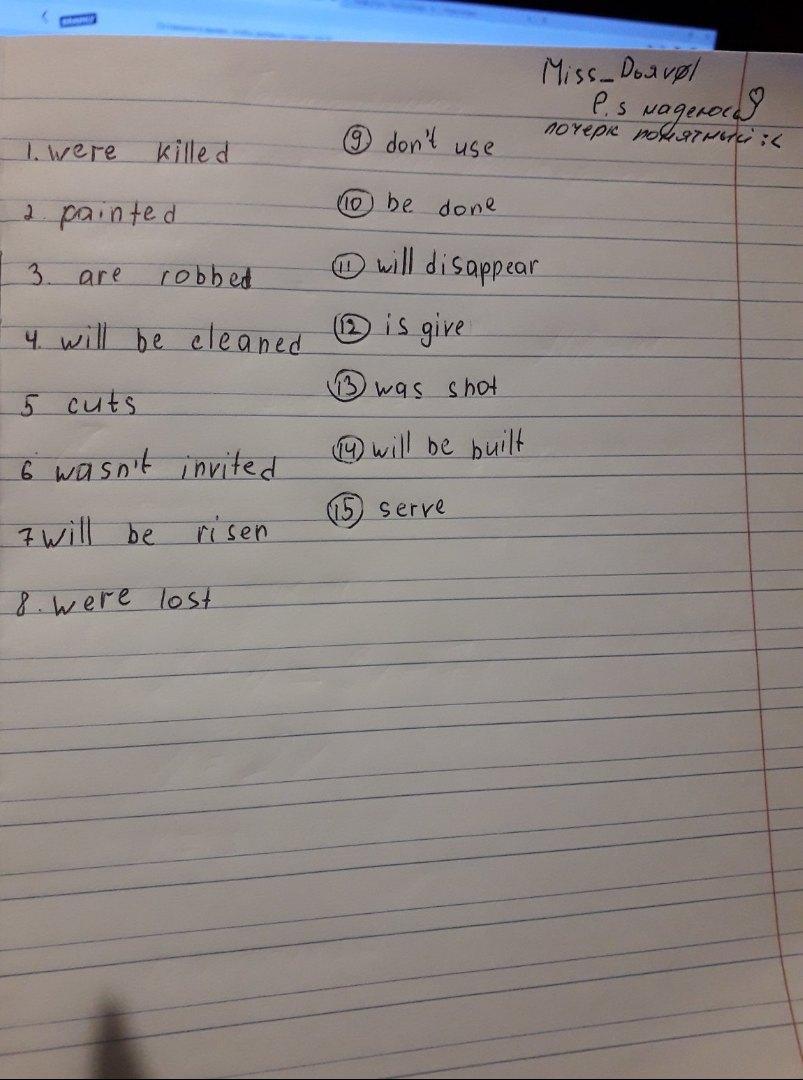 Miss_Dьяvøl
P.s надеюсь
почерк понятный :<
1. were killed
2. painted
3. are robbed
4. will be cleaned
5 cuts
6 wasn't invited
7 will be risen
8. were lost
9 don't use
10 be done
11 will disappear
12 is give
13 was shot
14 will be built
15 serve